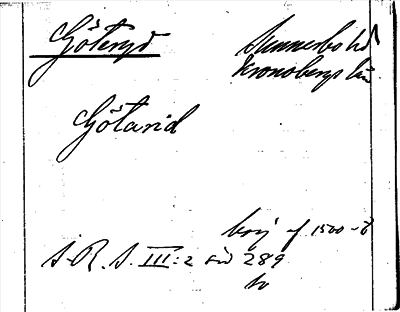 Göteryd Sunnerbo hd
Kronobergs län
Götarid
börj af 1500-t
S.R.S. III:2 sid 289